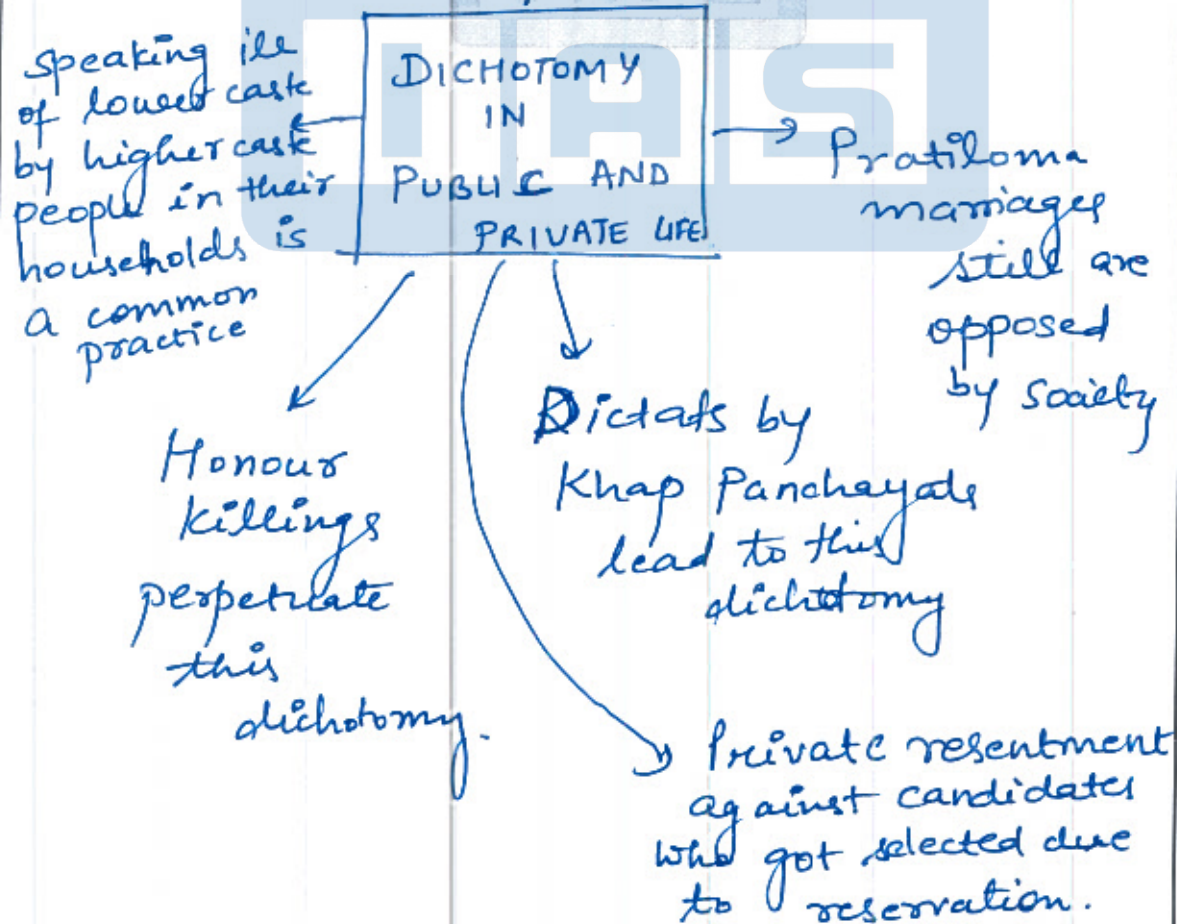 DICHOTOMY
IN
PUBLIC AND
PRIVATE LIFE
speaking ill
of lower caste
by higher caste
people in their
households is
a common
practice
Pratiloma
marriages
still are
opposed
by society
Honour
killings
perpetuate
this
dichotomy.
Dictats by
Khap Panchayats
lead to this
dichotomy
Private resentment
against candidates
who got selected due
to reservation.
IAS